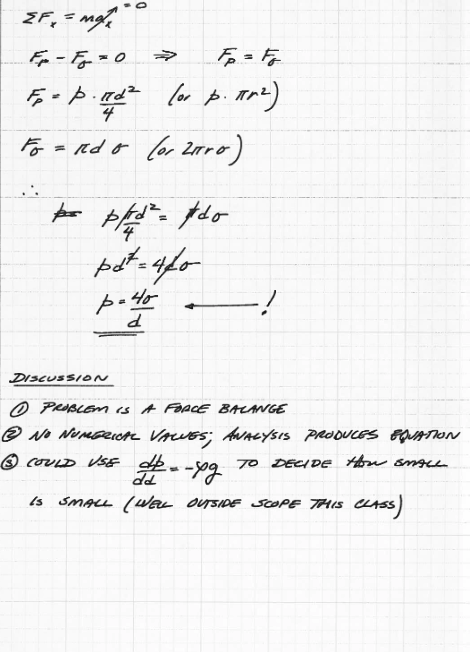 ΣFₓ = maₓ → 0
Fₚ - F_σ = 0 ⇒ Fₚ = F_σ
Fₚ = p · πd²/4 (or p · πr²)
F_σ = πd σ (or 2πrσ)
∴
p= p πd²/4 = πdσ
pd² = 4dσ
p = 4σ/d ← !
DISCUSSION
① PROBLEM IS A FORCE BALANCE
② NO NUMERICAL VALUES; ANALYSIS PRODUCES EQUATION
③ COULD USE dp/dd = -ρg TO DECIDE HOW SMALL
IS SMALL (WELL OUTSIDE SCOPE THIS CLASS)